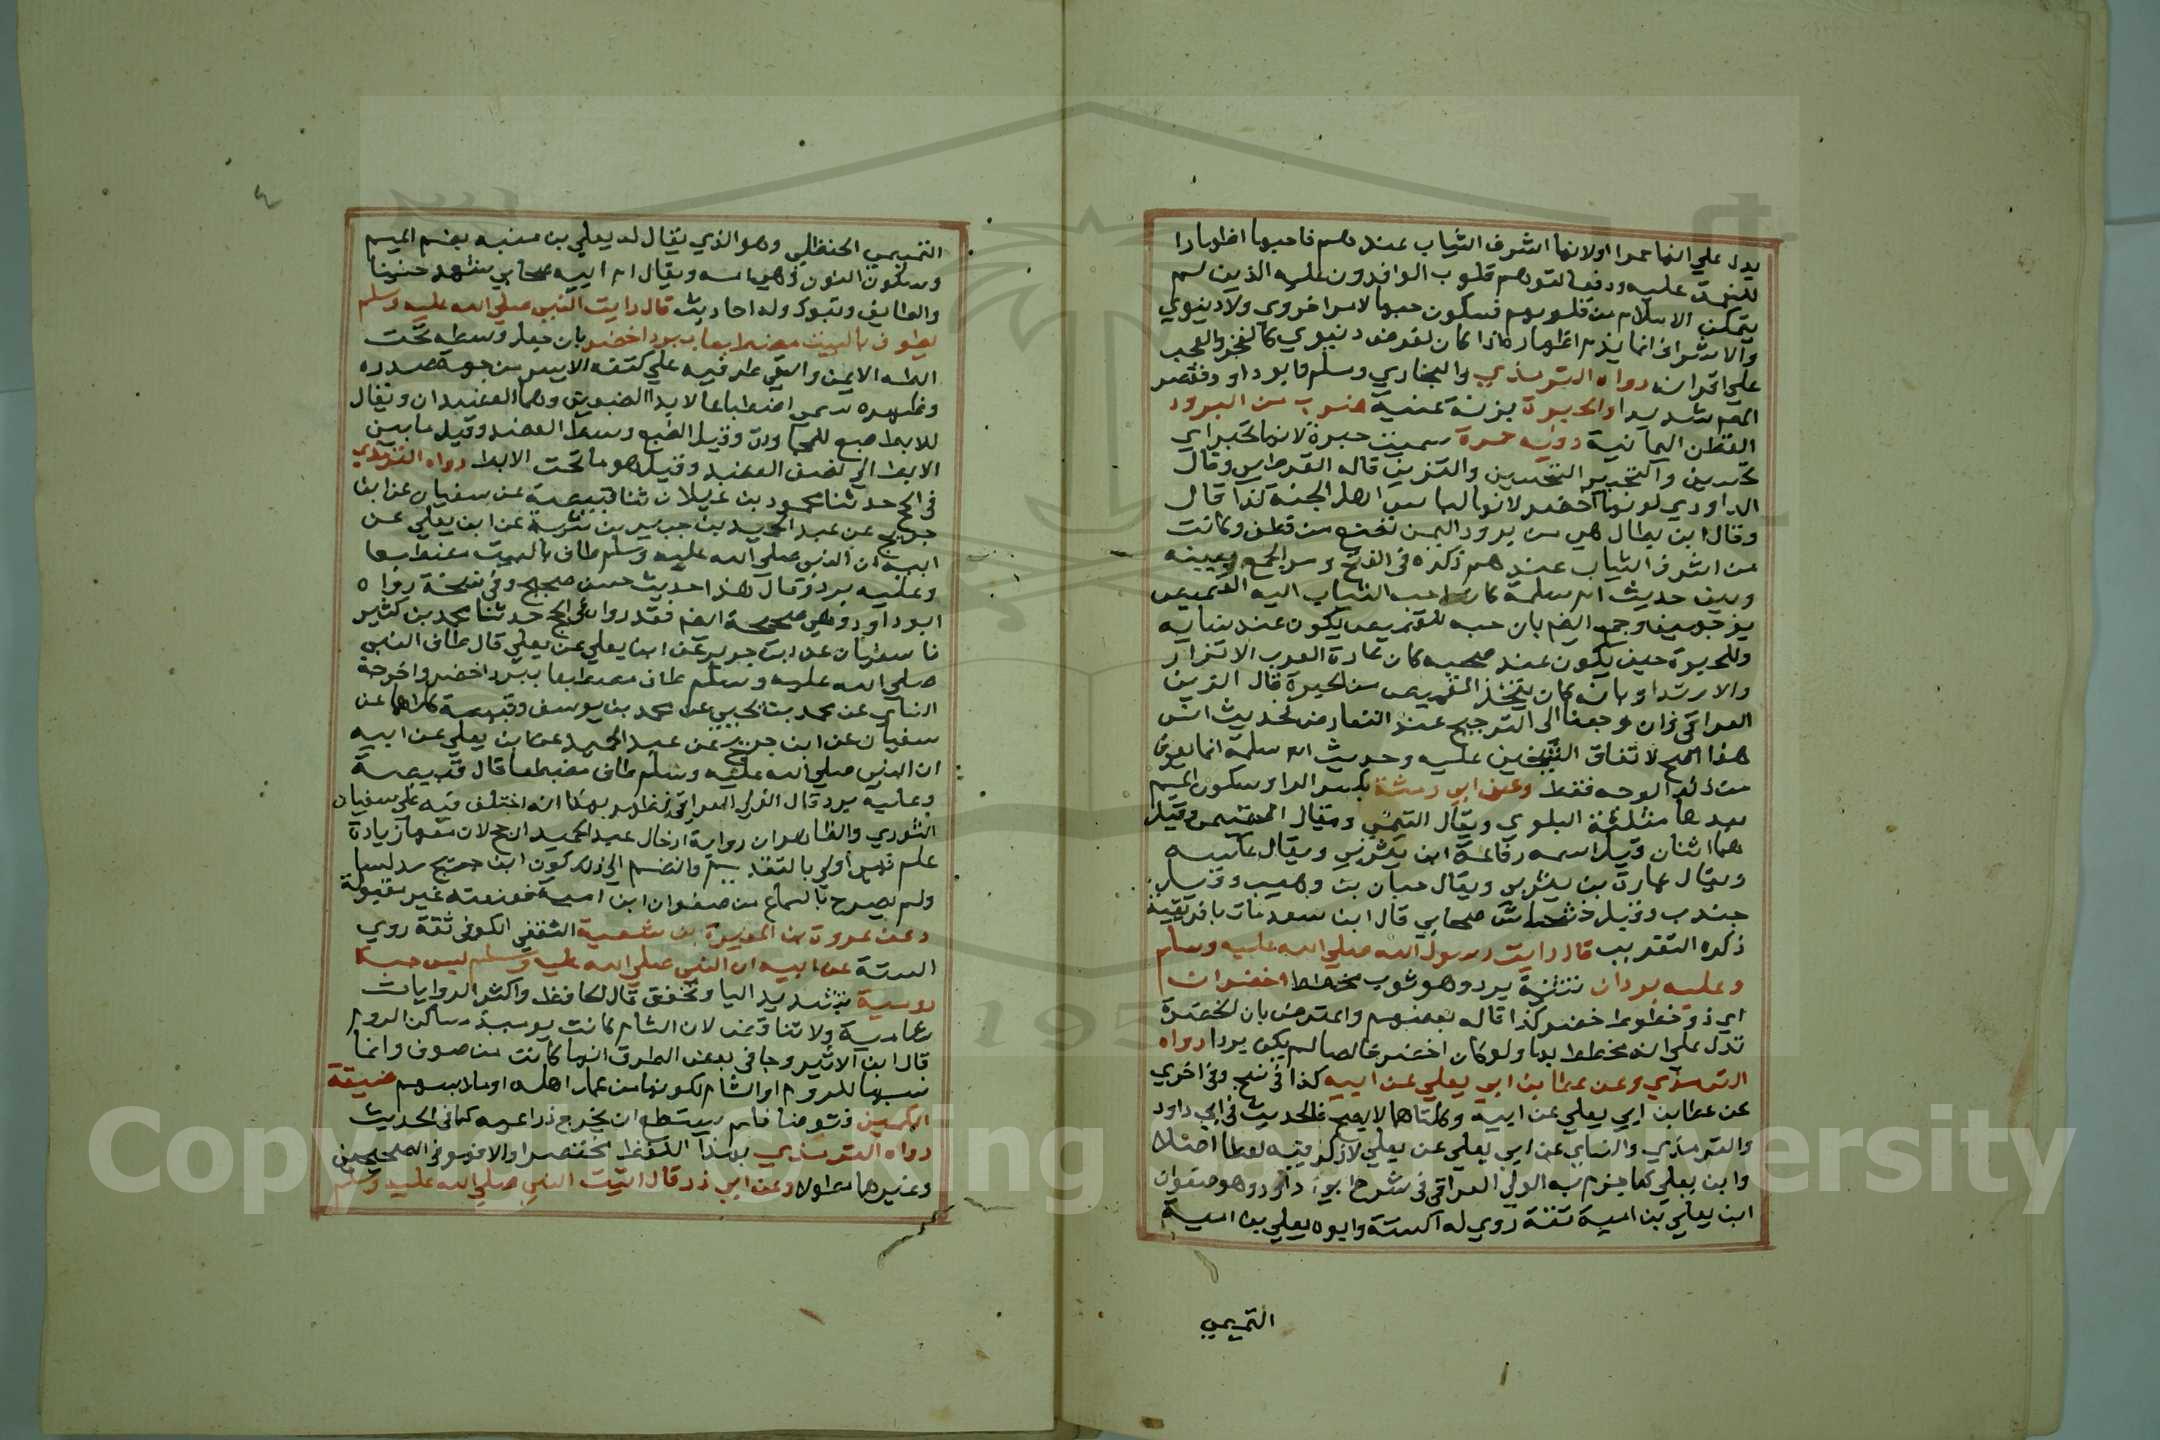 يدل علي انها حمرا اولانها اشرف الثياب عندهم فاحبها اظهارا
للنعمة عليه ودفعا لقلوب الوافدون عليه الذين لم
يتمكن الاسلام من قلوبهم فيكون حبها لامر اخروي ولا دنيوي
والاشراف انما يذم اظهاره اذا كان لغرض دنيوي كالفخر والعجب
علي اقرانه رواه الترمذي والبخاري ومسلم وابو داود فقصر
المص شديدا والحبرة بزنة عنبة ضرب من البرود
القطن اليمانية وفيه حمرة سميت حبرة لانها تحبر اي
تحسين والتحبير التحسين والتزيين قاله القرطبي وقال
الداودي لونها اخضر لانها لباس اهل الجنة كذا قال
وقال ابن بطال هي من برود اليمن تصنع من قطن وكانت
من اشرف الثياب عندهم ذكره في الفتح ومر الجمع بينه
وبين حديث ام سلمة كان احب الثياب اليه القميص
بوجهين وجمع ايضا بان حبه للقميص يكون عند نسايه
وللحبرة حين يكون عند صحبه كان عادة العرب الاتزار
والارتداء وبانه كان يتخذ القميص من الحبرة قال الزين
العراقي وان رجعنا الي الترجيح عند التعارض فحديث انس
هذا اصح لاتفاق الشيخين عليه وحديث ام سلمة انما يعرف
من ذلك الوجه فقط وعن ابي رمثة بكسر الرا وسكون الميم
بعدها مثلثة البلوي ويقال التيمي ويقال التميمي وقيل
هما اثنان وقيل اسمه رفاعة ابن يثربي ويقال عكسه
ويقال عمارة بن يثربي ويقال حيان بن وهيب وقيل
جندب وقيل خشخاش صحابي قال ابن سعد مات بافريقية
ذكره التقريب قال رايت رسول الله صلي الله عليه وسلم
وعليه بردان تثنية برد وهو ثوب مخطط اخضران
اي ذو خطوط خضر كذا قاله بعضهم واعترض بان الخضرة
تدل علي انه مخطط بها ولو كان اخضر خالصا لم يكن بردا رواه
الترمذي وعن عطا بن ابي يعلي عن ابيه كذا في نسخ وفي اخري
عن عطا بن ابي يعلي عن ابيه وكلتاهما لا يصح فالحديث في ابي داود
والترمذي والنساي عن ابن يعلي عن يعلي لا ذكر فيه لعطا اصلا
وابن يعلي كما جزم به الولي العراقي في شرح ابي داود وهو صفوان
ابن يعلي بن امية ثقة روي له الستة وابوه يعلي بن امية
التميمي
التميمي الحنظلي وهو الذي يقال له يعلي بن منية بضم الميم
وسكون النون وهي امه ويقال ام ابيه صحابي شهد حنينا
والطايف وتبوك وله احاديث قال رايت النبي صلي الله عليه وسلم
يطوف بالبيت مضطبعا ببرد اخضر بان جعل وسطه تحت
ابطه الايمن والقي طرفيه علي كتفه الايسر من جهة صدره
وظهره سمي اضطباعا لابدا الضبعين وهما العضدان ويقال
للابط ضبع للمجاورة وقيل الضبع وسط العضد وقيل ما بين
الابط الي نصف العضد وقيل هو ما تحت الابط رواه الترمذي
في الحج حدثنا محمود بن غيلان ثنا قبيصة عن سفيان عن ابن
جريج عن عبد الحميد بن جبير بن شيبة عن ابن يعلي عن
ابيه ان النبي صلي الله عليه وسلم طاف بالبيت مضطبعا
وعليه برد وقال هذا حديث حسن صحيح وفي نسخة رواه
ابو داود وهي صحيحة ايضا فقد رواه في الحج حدثنا محمد بن كثير
نا سفيان عن ابن جريج عن ابن يعلي عن يعلي قال طاف النبي
صلي الله عليه وسلم طاف مضطبعا ببرد اخضر واخرجه
النساي عن محمد بن يحيي عن محمد بن يوسف وقبيصة كلاهما عن
سفيان عن ابن جريج عن عبد الحميد عن ابن يعلي عن ابيه
ان النبي صلي الله عليه وسلم طاف مضطبعا قال قبيصة
وعليه برد قال الولي العراقي فظهر بهذا انه اختلف فيه علي سفيان
الثوري والظاهر ان رواية ادخال عبد الحميد ارجح لان معها زيادة
علم فهي اولي بالتقديم وانضم الي ذلك كون ابن جريج مدلسا
ولم يصرح بالسماع من صفوان ابن امية فعنعنته غير مقبولة
وعن عروة بن المغيرة بن شعبة الثقفي الكوفي ثقة روي
الستة عن ابيه ان النبي صلي الله عليه وسلم لبس جبة
رومية بتشديد اليا وتخفف قال الحافظ واكثر الروايات
شامية ولا تناقض لان الشام كانت يوميذ مساكن الروم
قال ابن الاثير وجا في بعض الطرق انها كانت من صوف وانما
نسبها للروم او الشام لكونها من عمل اهله او ملابسهم ضيقة
الكمين فتوضا فلم يستطع ان يخرج ذراعيه كما في الحديث
رواه الترمذي بهذا اللفظ مختصرا والا فهو في الصحيحين
وغيرهما مطولا وعن ابي ذر قال اتيت النبي صلي الله عليه وسلم
Copyright © King Saud University